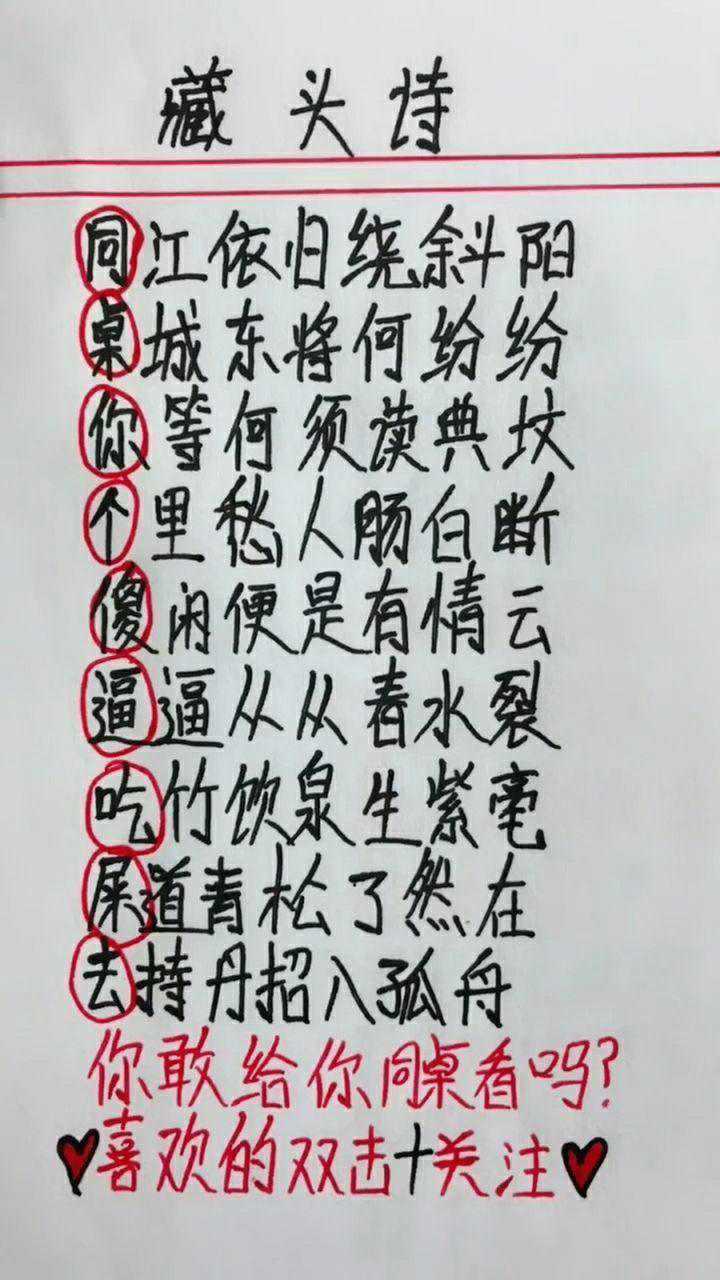 藏头诗
同江依旧绕斜阳
桌城东将何纷纷
你等何须读典坟
个里愁人肠白断
傻闲便是有情云
逼逼从从春水裂
吃竹饮泉生紫毫
屎道青松了然在
去持丹招八孤舟
你敢给你同桌看吗?
喜欢的双击+关注